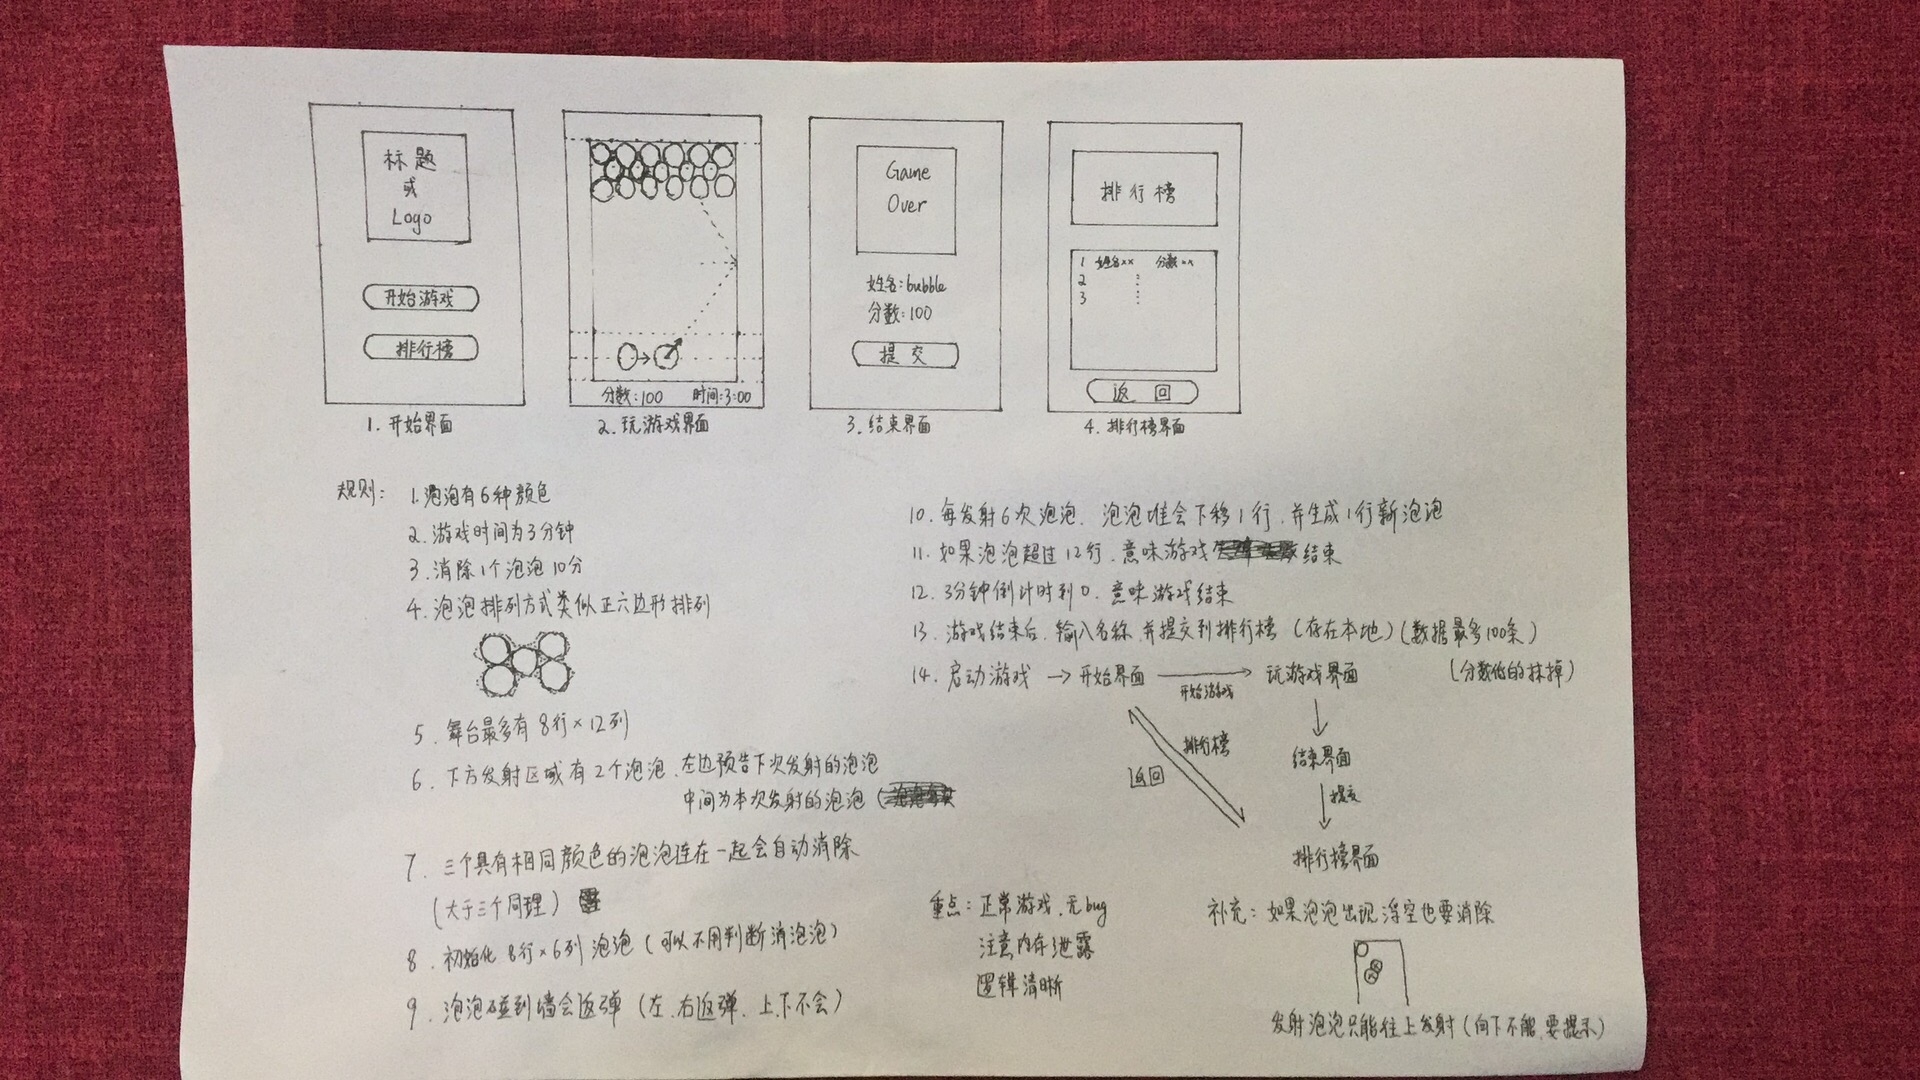 标题
或
Logo
开始游戏
排行榜
1. 开始界面
分数:100 时间:3:00
2. 玩游戏界面
Game
Over
姓名:bubble
分数:100
提交
3. 结束界面
排行榜
1 姓名xx 分数xx
2
3
返回
4. 排行榜界面
规则: 1. 泡泡有6种颜色
2. 游戏时间为3分钟
3. 消除1个泡泡10分
4. 泡泡排列方式类似正六边形排列
5. 舞台最多有8行×12列
6. 下方发射区域有2个泡泡,左边预告下次发射的泡泡
中间为本次发射的泡泡
7. 三个具有相同颜色的泡泡连在一起会自动消除
(大于三个同理)
8. 初始化8行×6列泡泡(可以不用判断消泡泡)
9. 泡泡碰到墙会返弹(左、右返弹、上、下不会)
10. 每发射6次泡泡、泡泡堆会下移1行、并生成1行新泡泡
11. 如果泡泡超过12行、意味游戏结束
12. 3分钟倒计时到0、意味游戏结束
13. 游戏结束后、输入名称、并提交到排行榜(存在本地)(数据最多100条)
(分数低的抹掉)
14. 启动游戏 → 开始界面 → 玩游戏界面
开始游戏
排行榜
返回
结束界面
提交
排行榜界面
重点: 正常游戏、无bug
注意内存泄露
逻辑清晰
补充: 如果泡泡出现浮空也要消除
发射泡泡只能往上发射(向下不能、要提示)